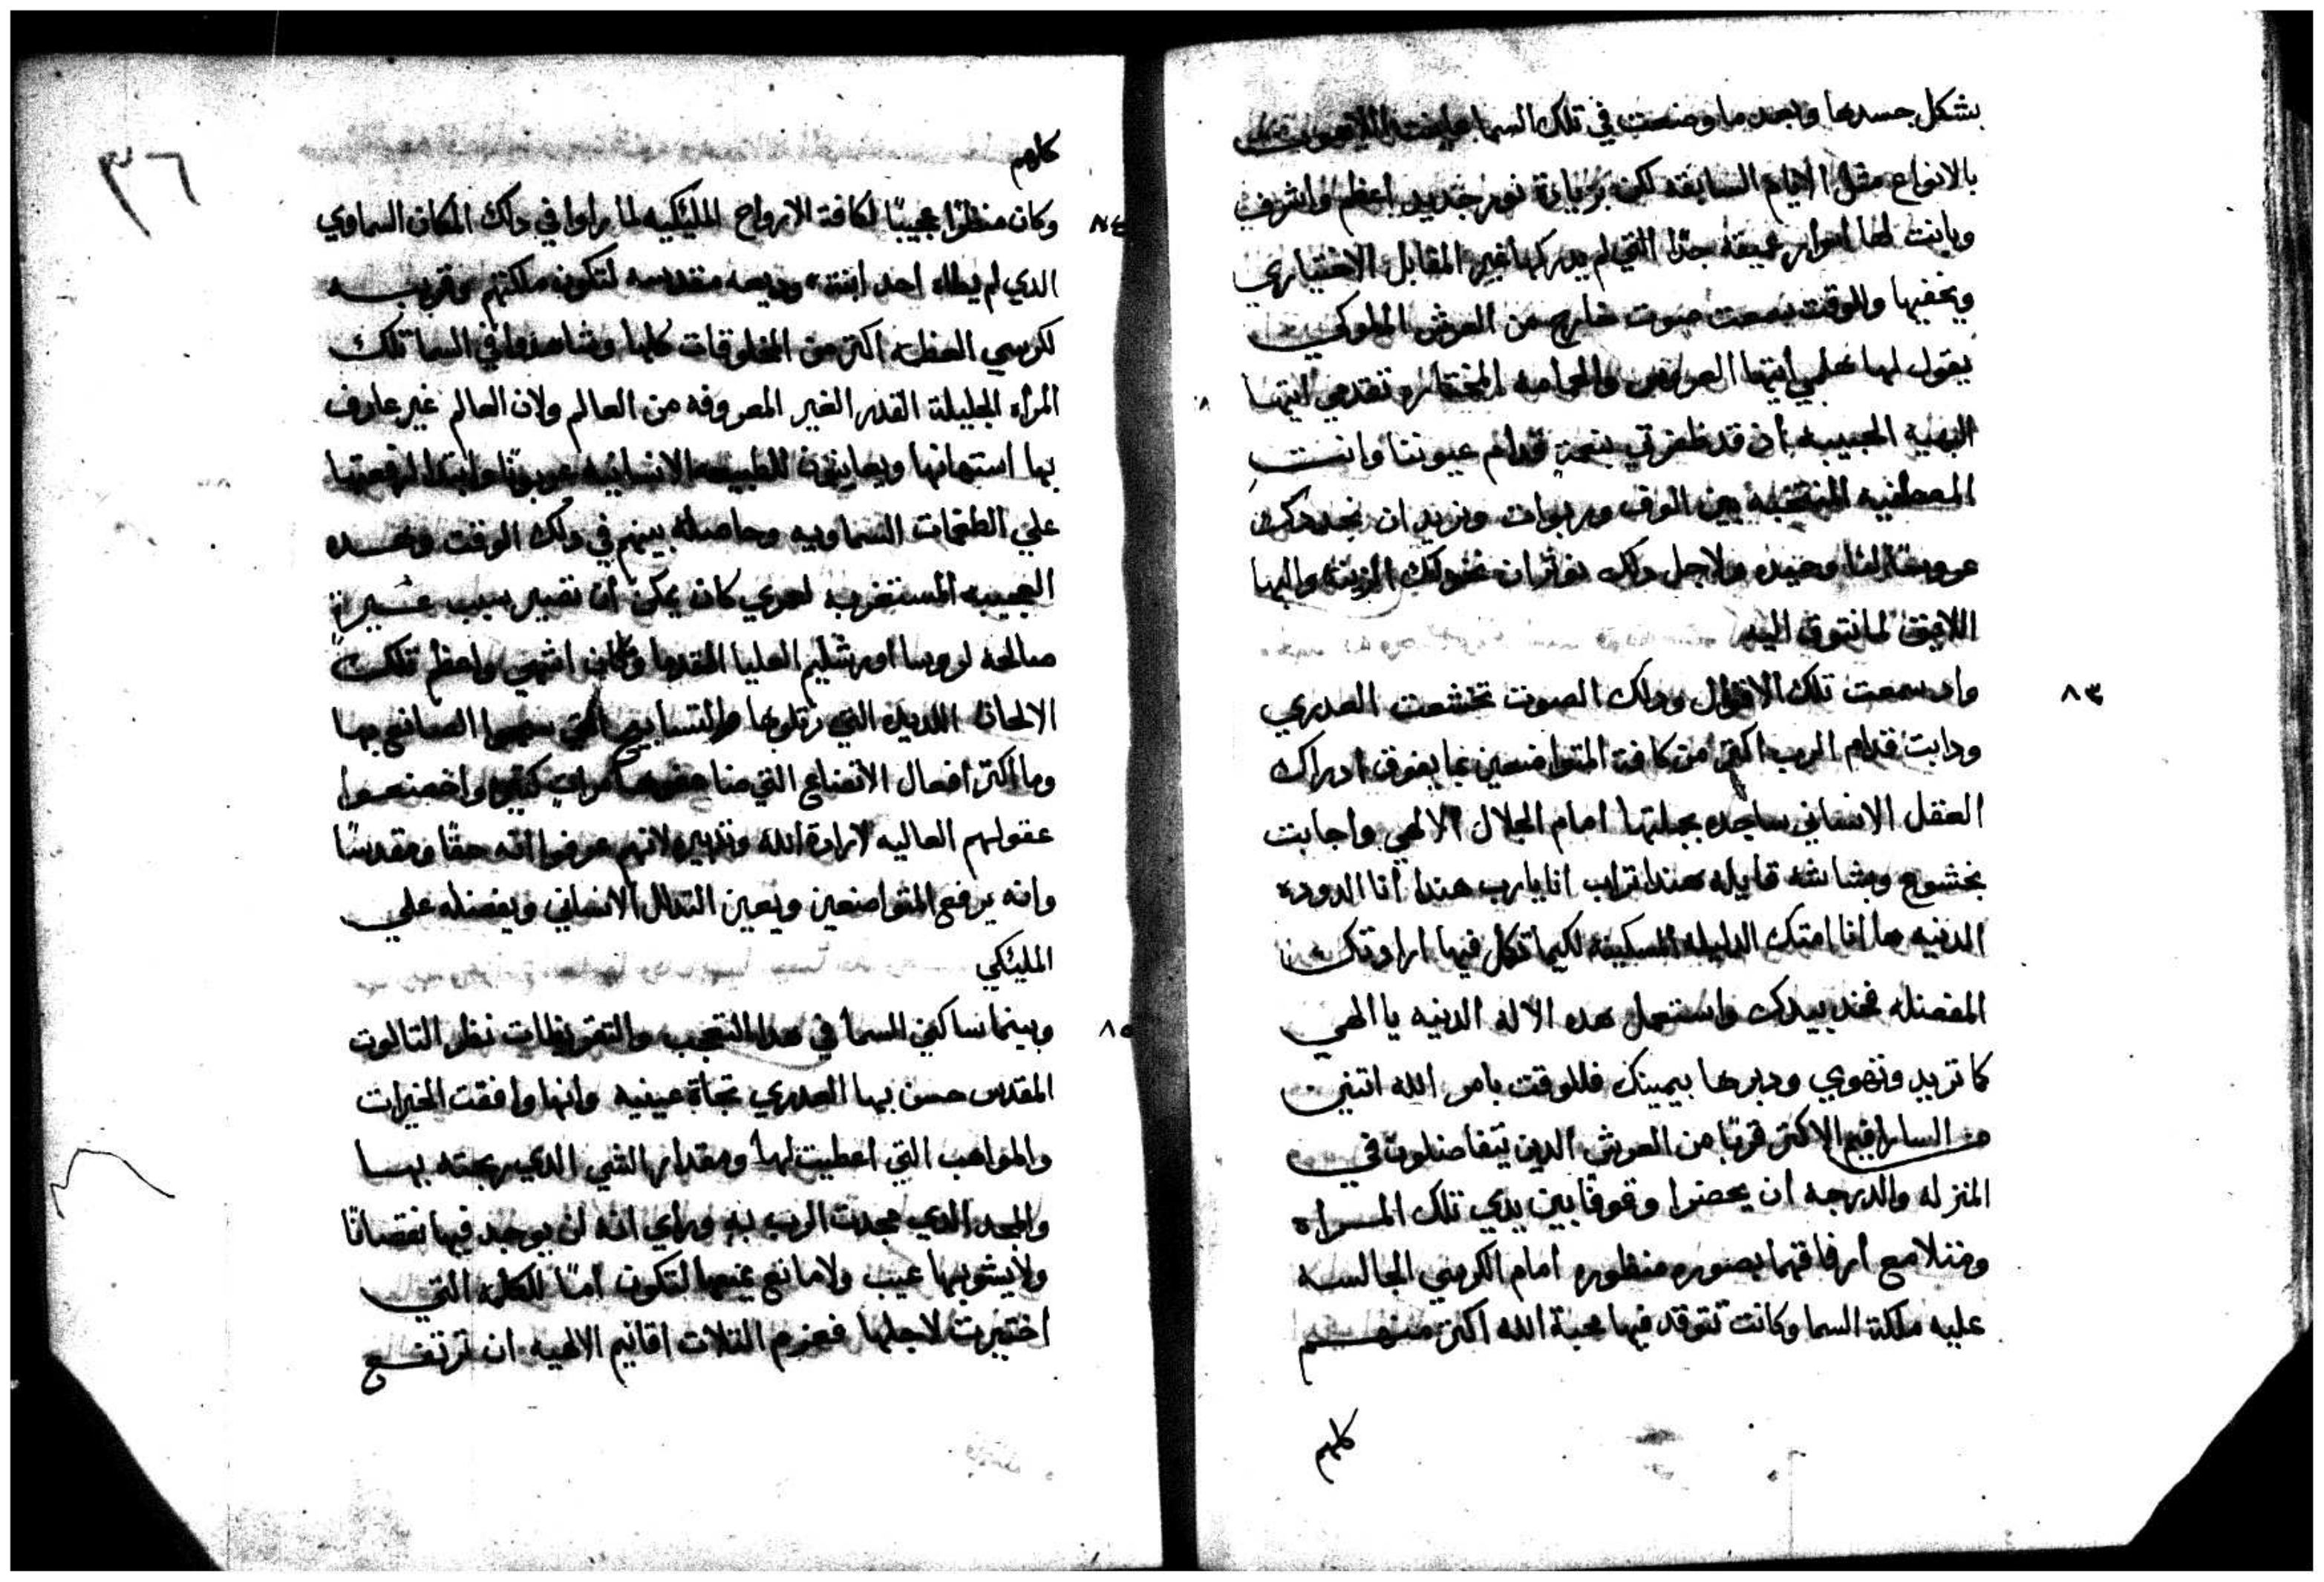 بشكل جسدها وبعد ما وضعت في تلك السما عاينت اللاهوت
بالانواع مثل الايام السابقه لكن بزيادة نور جديد اعظم واشرف
وبانت لها اسرار عميقه جدًا التي لم يدركها غير المقابل الاختياري
ويخفيها وللوقت سمعت صوت خارج من العرش الملوكي
يقول لها هلمي ايتها العروس والحمامه المختاره تقدمي ايتها
البهية الحبيبه اذ قد ظفرتي بنعمةٍ قدام عيوننا وانت
المصطفيه المنتخبه بين الوف وربوات ونريد ان نجددك
عروستًا لنا وحيده ولاجل ذلك نوثر ان نخولك الزينه والبها
اللايق لما نتوق اليه
٨٣
واد سمعت تلك الاقوال وداك الصوت تخشعت العدري
ودابت قدام الرب اكتر من كافة المتواضعين بما يفوق ادراك
العقل الانساني ساجده بجملتها امام الجلال الالهي واجابت
بخشوع وبشاشه قايله هندا تراب انا يارب هندا أنا الدوده
الدنيه ها انا امتك الدليله المسكينه لكيما تكمل فيها ارادتك
المفضله فخد بيدك واستعمل هده الاله الدنيه يا الهي
كما تريد وتهوي ودبرها بيمينك فللوقت بامر الله اتنين
من السارافيم الاكتر قربًا من العرش الدين يتفاضلون في
المنزله والدرجه ان يحضرا وقوفًا بين يدي تلك المراه
ومتلا مع ارفاقهما بصوره منظوره امام الكرسي الجالسه
عليه ملكة السما وكانت تتوقد فيها محبة الله اكتر منهم
كلهم
٣٦
كلهم
٨٤
وكان منظرًا عجيبًا لكافة الارواح الملئكيه لما راوا في داك المكان السماوي
الدي لم يطاه احد ابنة وديعه مقدسه لتكون ملكتهم وقريبه
لكرسي العظمه اكتر من المخلوقات كلها وشاهدوا في السما تلك
المراه الجليلة القدر الغير المعروفه من العالم ولان العالم غير عارف
بها استهانها ويعاينون للطبيعه الانسانيه عربونًا وابتدا لرفعتها
علي الطغمات السماويه وحاصله بينهم في دلك الوقت
العجيبه المستغربه لعمري كان يمكن ان تصير سبب غيرةً
صالحه لروسا اورشليم العليا القدما وكان اشهي واعظم تلك
الالحان اللديده التي رتلوها والتسابيح التي سبحوا الصانع بها
وما اكتر افعال الاتضاع التي مراتٍ كتيره واخضعوا
عقولهم العاليه لارادة الله وتدبيره لانهم عرفوا انه حقًا ومقدسًا
وانه يرفع المتواضعين ويعين التدلل الانساني ويفضله علي
الملئكي
٨٥
وبينما ساكني السما في هدا التعجب والتقريظات نظر التالوت
المقدس حسن بها العدري تجاة عينيه وانها وافقت الخيرات
والمواهب التي اعطيت لها ومقدار الشي الدي ربحته بها
والمجد الدي مجدت الرب به وراي انه لن يوجد فيها نقصانًا
ولا يشوبها عيب ولا مانع يمنعها لتكون امًا للكلمه التي
اختيرت لاجلها فعزم التلات اقانيم الالهيه ان ترتفع